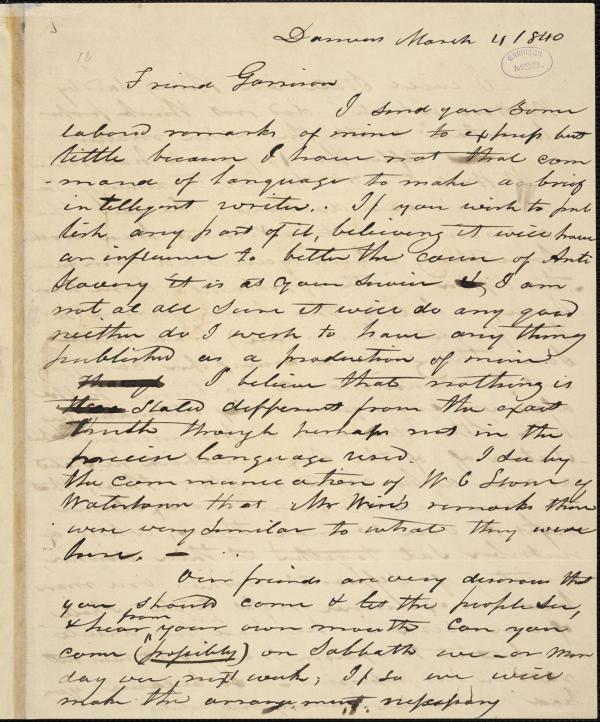 Danvers March 4 / 1840
GARRISON
MSS.
13
Friend Garrison
I send you some
labord remarks of mine to express but
little because I have not that com
-mand of language to make a brief
intellegent writer. If you wish to pub
lish any part of it, believing it will have
an influence to better the cause of Anti
Slavery it is at your service I am
not at all sure it will do any good
neither do I wish to have any thing
published as a production of mine.
I believe that nothing is
stated different from the exact
truth though perhaps not in the
precise language used. I see by
the communication of W C Stone of
Watertown that Mr Wise's remarks there
were very similar to what they were
here. —
Our friends are very desirous that
you should come & let the people see,
& hear from your own mouth Can you
come (possibly) on Sabbath eve - or Mon
day eve next week; If so we will
make the arrangement nessessary